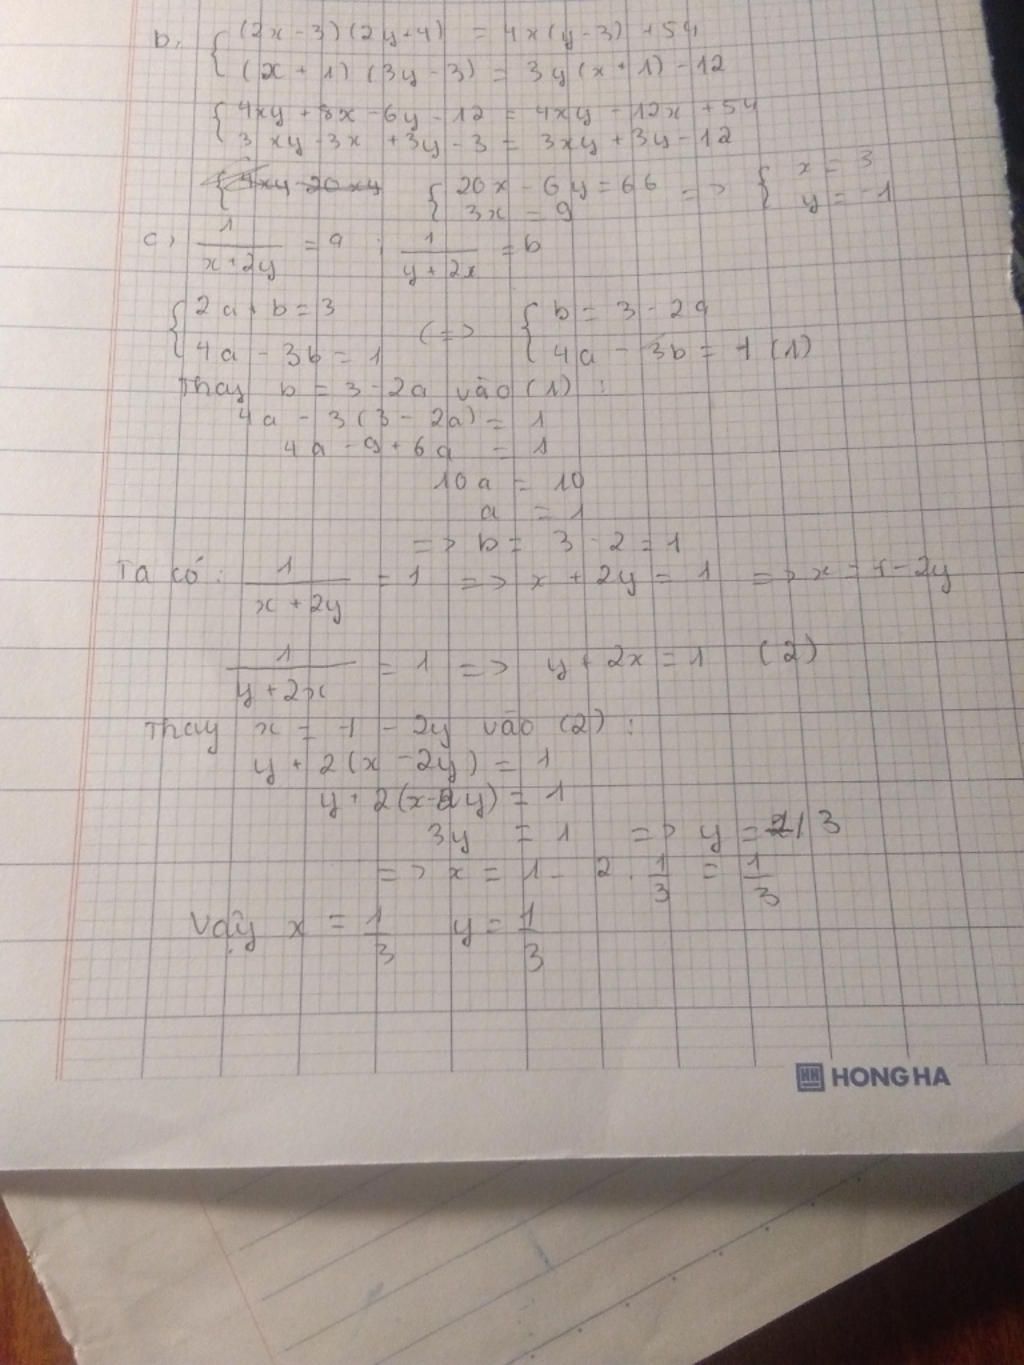 b, { (2x - 3)(2y + 4) = 4x(y - 3) + 54
(x + 1)(3y - 3) = 3y(x + 1) - 12
{ 4xy + 8x - 6y - 12 = 4xy - 12x + 54
3xy - 3x + 3y - 3 = 3xy + 3y - 12
{ 20x - 6y = 66 => { x = 3
3x = 9 y = -1
c, 1/(x+2y) = a ; 1/(y+2x) = b
{ 2a + b = 3 <=> { b = 3 - 2a
4a - 3b = 1 4a - 3b = 1 (1)
Thay b = 3 - 2a vào (1) :
4a - 3(3 - 2a) = 1
4a - 9 + 6a = 1
10a = 10
a = 1
=> b = 3 - 2 = 1
Ta có: 1/(x+2y) = 1 => x + 2y = 1 => x = 1 - 2y
1/(y+2x) = 1 => y + 2x = 1 (2)
Thay x = 1 - 2y vào (2) :
y + 2(x - 2y) = 1
y + 2(x - 2y) = 1
3y = 1 => y = 1/3
=> x = 1 - 2 . 1/3 = 1/3
Vậy x = 1/3 y = 1/3
HONG HA